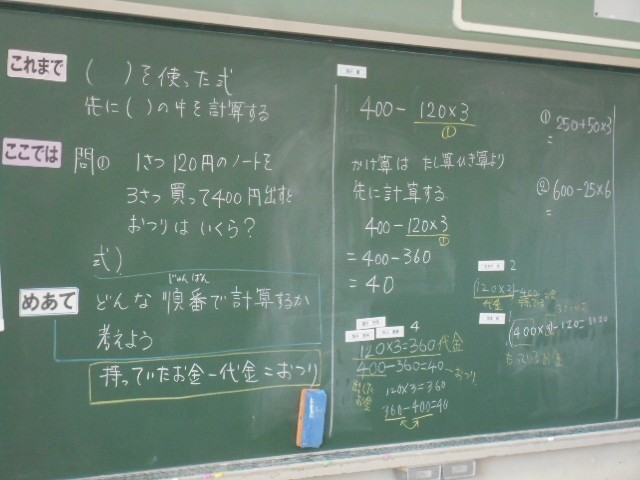 これまで
( )を使った式
先に( )の中を計算する
ここでは
問① 1さつ120円のノートを
3さつ買って400円出すと
おつりはいくら?
式)
めあて
じゅんばん
どんな順番で計算するか
考えよう
持っていたお金-代金=おつり
400-120×3
①
かけ算はたし算ひき算より
先に計算する
400-120×3
①
=400-360
=40
4
120×3=360代金
400-360=40
おつり
120×3=360
360-400=40
① 250+50×3
=
② 600-25×6
=
2
代金